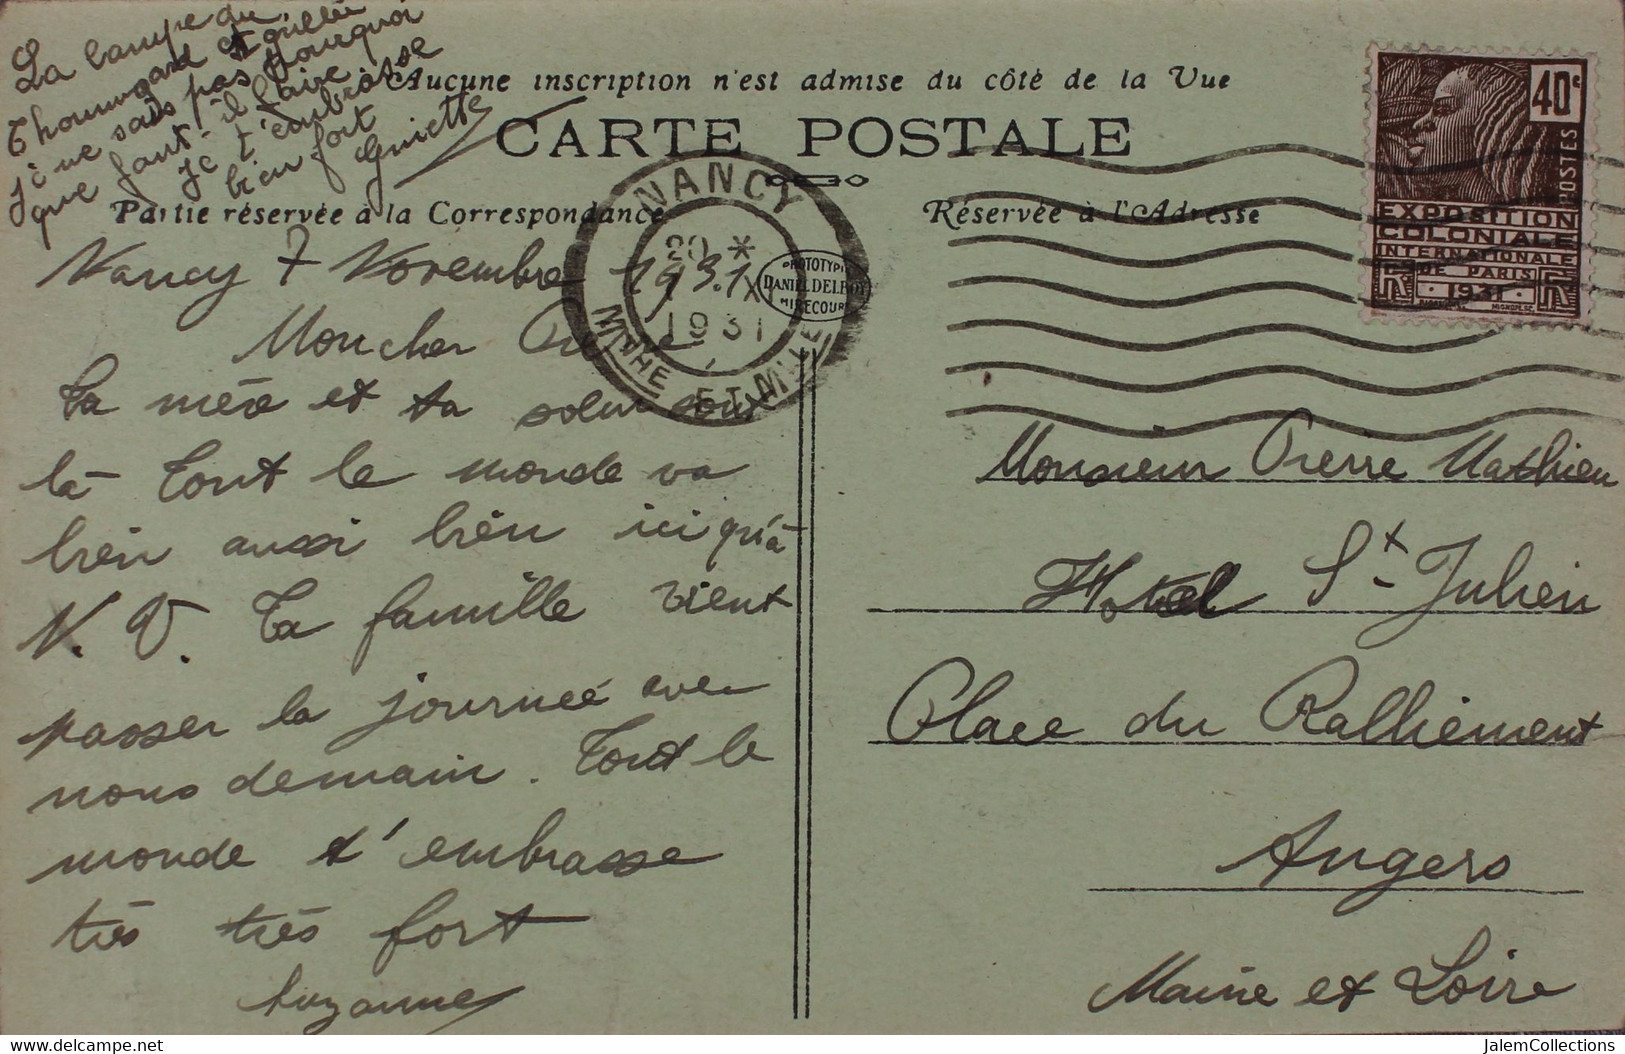 La lampe du
Thoumyard est grillée
je ne sais pas pourquoi
que faut-il faire
je t'embrasse
bien fort
Guiette
Aucune inscription n'est admise du côté de la Vue
CARTE POSTALE
Partie réservée à la Correspondance
Réservée à l'Adresse
NANCY
20 *
7 XI
1931
MTHE ET MLLE
PROTOTYPIE
DANIEL DELBOY
MIRECOURT
40c
POSTES
EXPOSITION
COLONIALE
INTERNATIONALE
DE PARIS
1931
Nancy 7 Novembre 1931
Mon cher Pierre
Ta mère et ta soeur sont
là Tout le monde va
bien aussi bien ici qu'à
N. V. Ta famille vient
passer la journée avec
nous demain. Tout le
monde t'embrasse
très très fort
Suzanne
Monsieur Pierre Mathieu
Hotel St Julien
Place du Ralliement
Angers
Maine et Loire
JalemCollections
delcampe.net